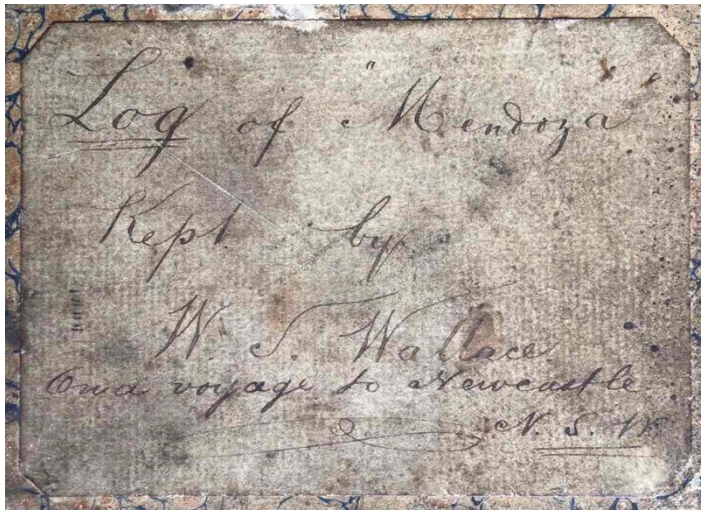 Log of "Mendoza"
Kept by
W. S. Wallace.
On a voyage to Newcastle
N. S. W